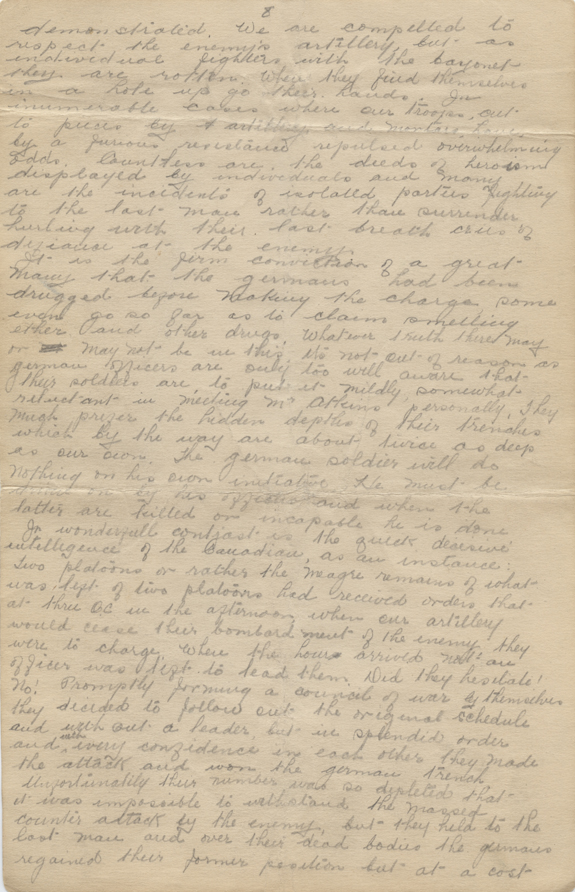 8
demonstrated. We are compelled to
respect the enemy's artillery but as
individual fighters with the bayonet
they are rotten. When they find themselves
in a hole up go their hands. In
inumerable cases where our troops, cut
to pieces by artillery and have
by a furious resistance repulsed overwhelming
odds. Countless are the deeds of heroism
displayed by individuals and many
are the incidents of isolated parties fighting
to the last man rather than surrender
hurling with their last breath cries of
defiance at the enemy.
It is the firm conviction of a great
many that the germans had been
drugged before making the charge some
even go so far as to claim smelling
ether and other drugs. Whatever truth there may
or may not be in this, its not out of reason as
german officers are only too well aware that
their soldiers are, to put it mildly, somewhat
reluctant in meeting Mr Atkins personally. They
much prefer the hidden depths of their trenches
which by the way are about twice as deep
as our own. The german soldier will do
nothing on his own initiative. He must be
by his officers and when the
latter are killed or incapable he is done
In wonderfull contrast is the quick decisive
intelligence of the Canadian, as an instance:
two platoons or rather the meagre remains of what
was left of two platoons had received orders that
at three oc in the afternoon when our artillery
would cease their bombardment of the enemy they
were to charge. When the hour arrived not an
officer was left to lead them. Did they hesitate!
No! Promptly forming a council of war by themselves
they decided to follow out the original schedule
and without a leader, but in splendid order
and with every confidence in each other they made
the attack and won the german trench
Unfortunately their number was so depleted that
it was impossible to withstand the massed
counter attack by the enemy, but they held to the
last man and over their dead bodies the germans
regained their former position but at a cost